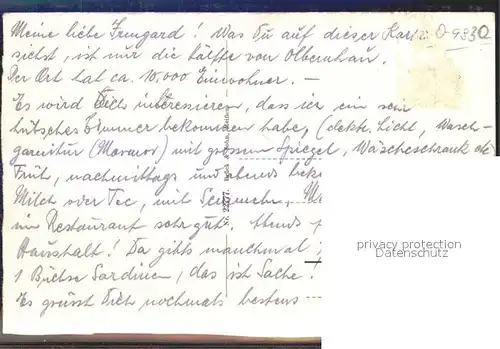 Meine liebe Irmgard! Was Du auf dieser Karte
O-9330
siehst, ist nur die Hälfte von Olbernhau.
Der Ort hat ca. 10,000 Einwohner. –
Es wird Dich interesieren, dass ich ein sehr
hübsches Zimmer bekommen habe, (elektr. Licht, Wasch-
garnitur (Marmor) mit grossem Spiegel, Wäscheschrank etc
Früh, nachmittags und abends
Milch oder Tee, mit Semmeln,
im Restaurant sehr gut. Abends
Haushalt! Da gibts manchmal
1 Büchse Sardinen, das ist Sache!
Es grüsst Dich nochmals bestens
Nr. 22477.
privacy protection
Datenschutz